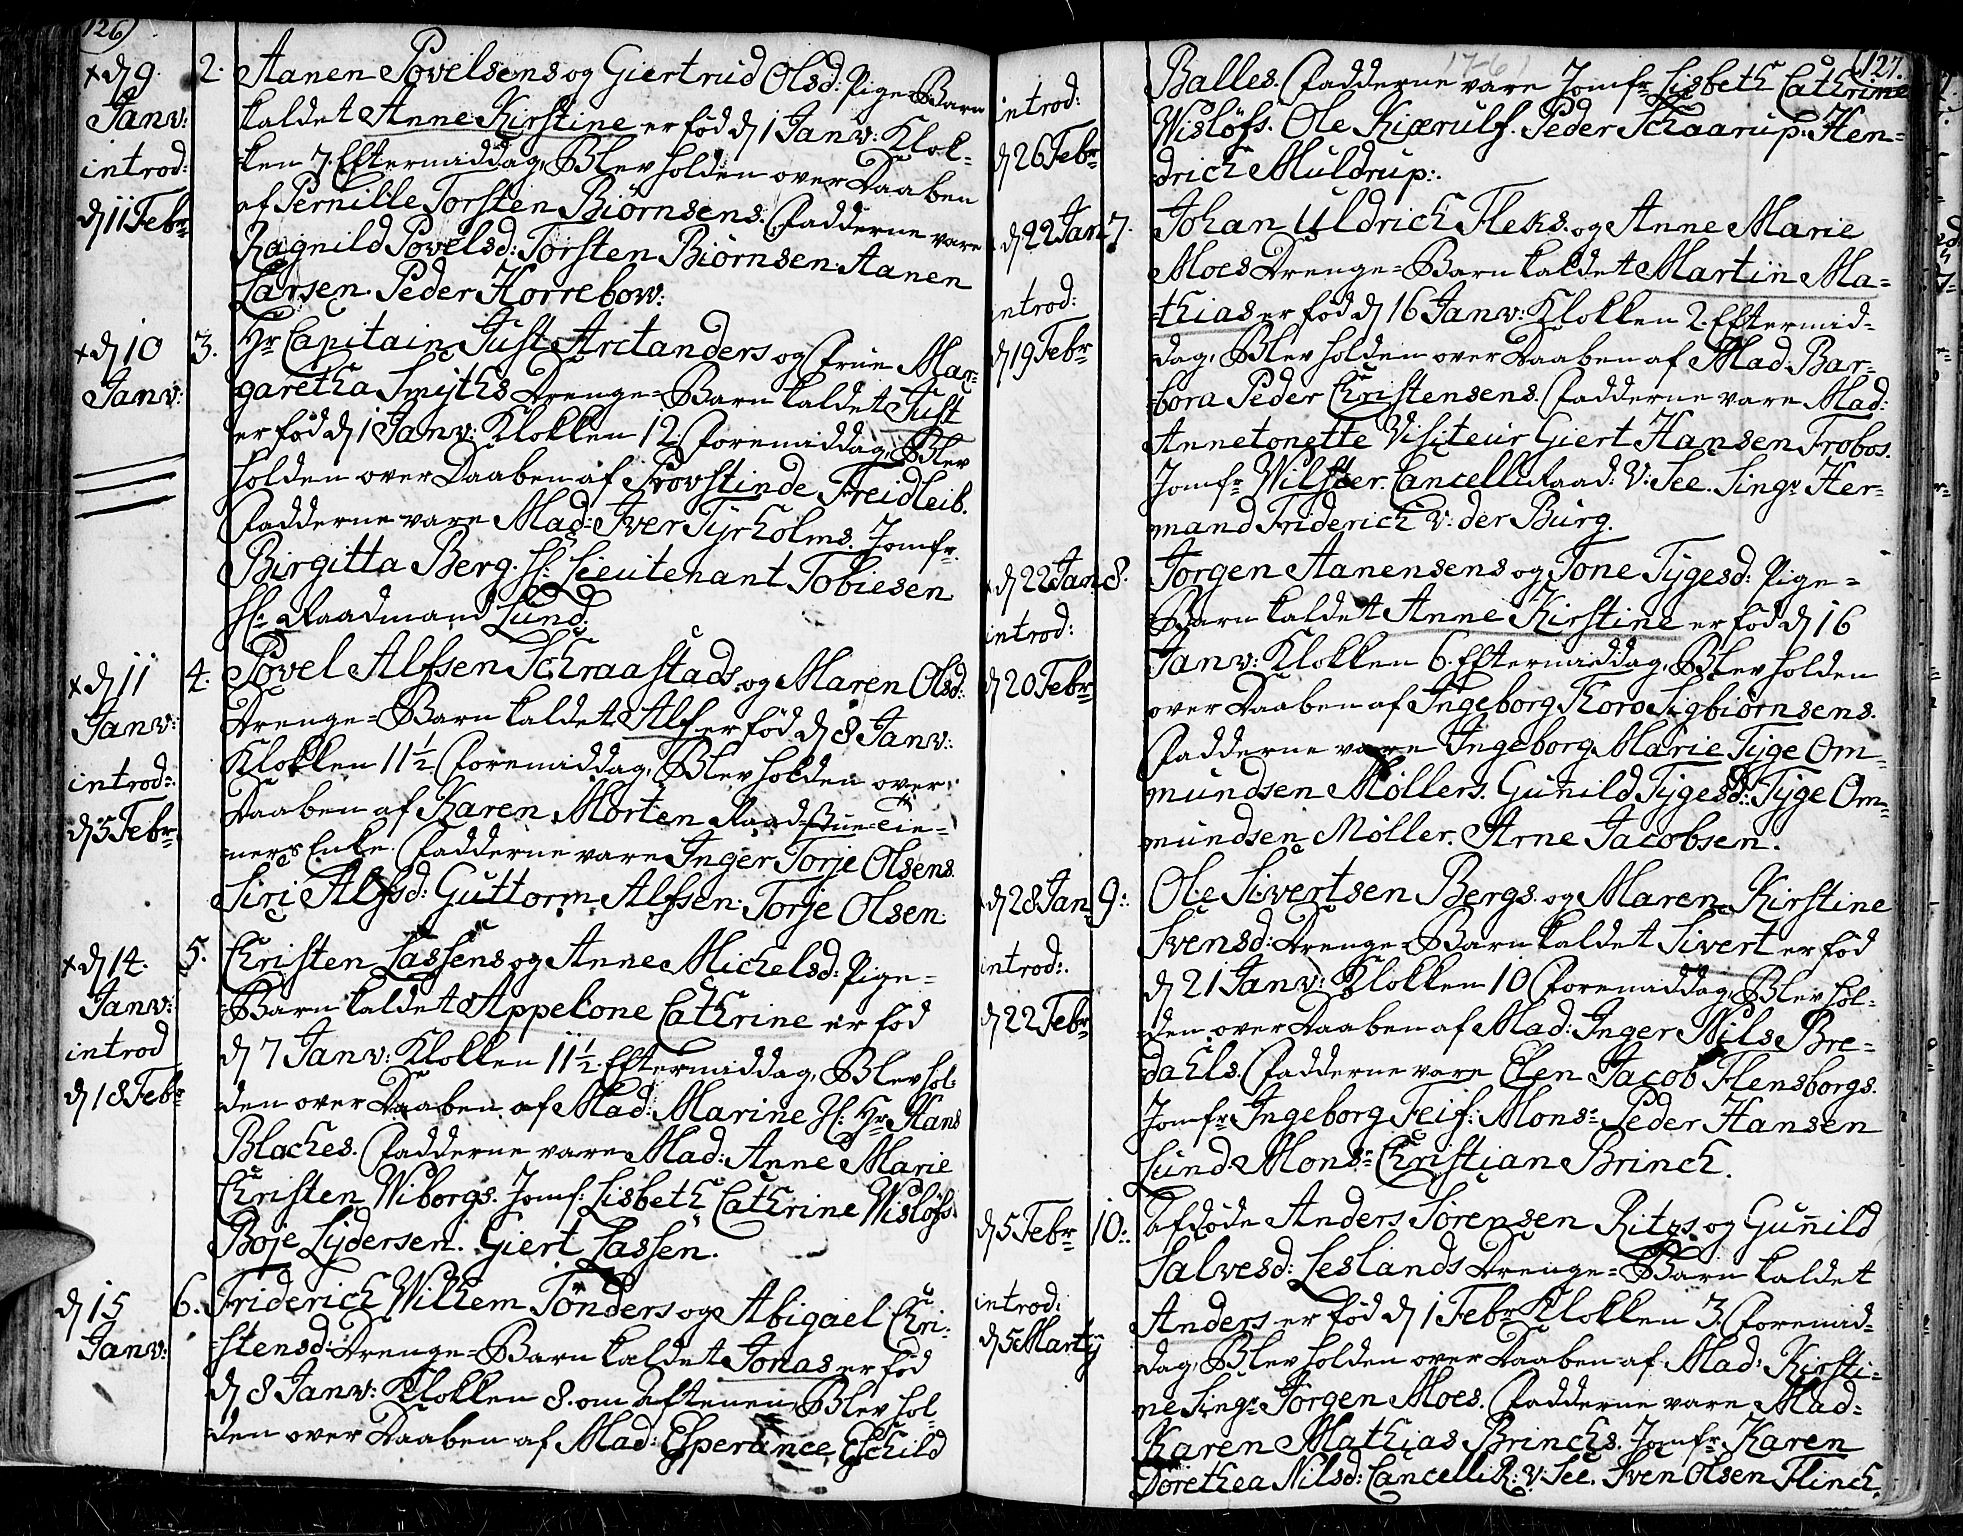 126
+ d 9. 2. Aanen Povelsens og Giertrud Olsd: Pige-Barn
Janv: kaldet Anne Kirstine er fød d 1 Janv: Klok-
introd: ken 7. Eftermiddag, Blev holden over Daaben
d 11 Febr af Pernille Torsten Biørnsens. Fadderne vare
Ragnild Povelsd: Torsten Biørnsen. Aanen
Larsen. Peder Horrebow:
+ d 10 3. Hr Capitain Just Arctanders og Frue Mar-
Janv: garetha Smiths Drenge-Barn kaldet Just
er fød d 1 Janv: Klokken 12. Foremiddag, Blev
holden over Daaben af Provstinde Freidleib.
Fadderne vare Mad: Iver Tyrholms. Jomfr
Birgitta Berg. H: Lieutenant Tobiesen
H: Raadmand Lund.
+ d 11 4. Povel Alfsen Schraastads og Maren Olsd:
Janv: Drenge-Barn kaldet Alf er fød d 8 Janv:
introd: Klokken 11½ Foremiddag, Blev holden over
d 5 Febr Daaben af Karen Morten Raad-Stue-Tie-
ners Enke. Fadderne vare Inger Torje Olsens.
Siri Alfsd: Guttorm Alfsen. Torje Olsen.
+ d 14. 5. Christen Lassens og Anne Michelsd: Pige-
Janv: Barn kaldet Appelone Cathrine er fød
introd d 7 Janv: Klokken 11½ Eftermiddag, Blev hol-
d 18 Febr den over Daaben af Mad: Marine H: Hr Hans
Blaches. Fadderne vare Mad: Anne Marie
Christen Wiborgs. Jomf: Lisbeth Cathrine Wisløfs.
Boje Lydersen. Giert Lassen.
d 15 6. Friderich Wilhem Tønders og Abigael Chri-
Janv: stensd: Drenge-Barn kaldet Jonas er fød
d 8 Janv: Klokken 8. om aftenen, Blev hol-
den over Daaben af Mad: Esperance Eschild
127.
1761
introd: Balles. Fadderne vare Jomfr Lisbeth Cathrine
Wisløfs. Ole Kierulf. Peder Schaarup. Hen-
d 26 Febr drich Muldrup:
d 22 Jan 7. Johan Uldrich Fleks. og Anne Marie
Moes Drenge-Barn kaldet Martin Ma-
introd: thias er fød d 16 Janv: Klokken 2. Eftermid-
d 19 Febr dag, Blev holden over Daaben af Mad: Bar-
bora Peder Christensens. Fadderne vare Mad:
Annetonette Visiteur Giert Hansen Frobos.
Jomfr Wilster. Cancelli Raad: V: See. Singr Her-
mand Friderich v: der Burg.
+ d 22 Jan 8. Jørgen Aanensens og Tone Tygesd: Pige-
introd: Barn kaldet Anne Kirstine er fød d 16
Janv: Klokken 6. Eftermiddag, Blev holden
d 20 Febr over Daaben af Ingeborg Thoro Sigbiørnsens.
Fadderne vare Ingeborg Marie Tyge Om-
mundsen Møllers. Gunild Tygesd: Tyge Om-
mundsen Møller. Arne Jacobsen.
d 28 Jan 9: Ole Sivertsen Bergs. og Maren Kirstine
Svensd: Drenge-Barn kaldet Sivert er fød
introd: d 21 Janv: Klokken 10 Foremiddag, Blev hol-
d 22 Febr den over Daaben af Mad: Inger Nils Bre-
dahls. Fadderne vare Elen Jacob Flensborgs.
Jomfr Ingeborg Feif: Monsr Peder Hansen
Lund. Monsr Christian Brinch.
d 5 Febr 10: Afdøde Anders Sørensen Ritzs. og Gunild
Salvesd: Leslands Drenge-Barn kaldet
introd: Anders er fød d 1 Febr Klokken 3. Foremid-
d 5 Martij dag, Blev holden over Daaben af Mad: Kirsti-
ne Singr Jørgen Moes. Fadderne vare Mad:
Karen Mathias Brinchs. Jomfr Karen
Dorethea Nilsd: Cancelli R: v. See. Sven Olsen Flinch.